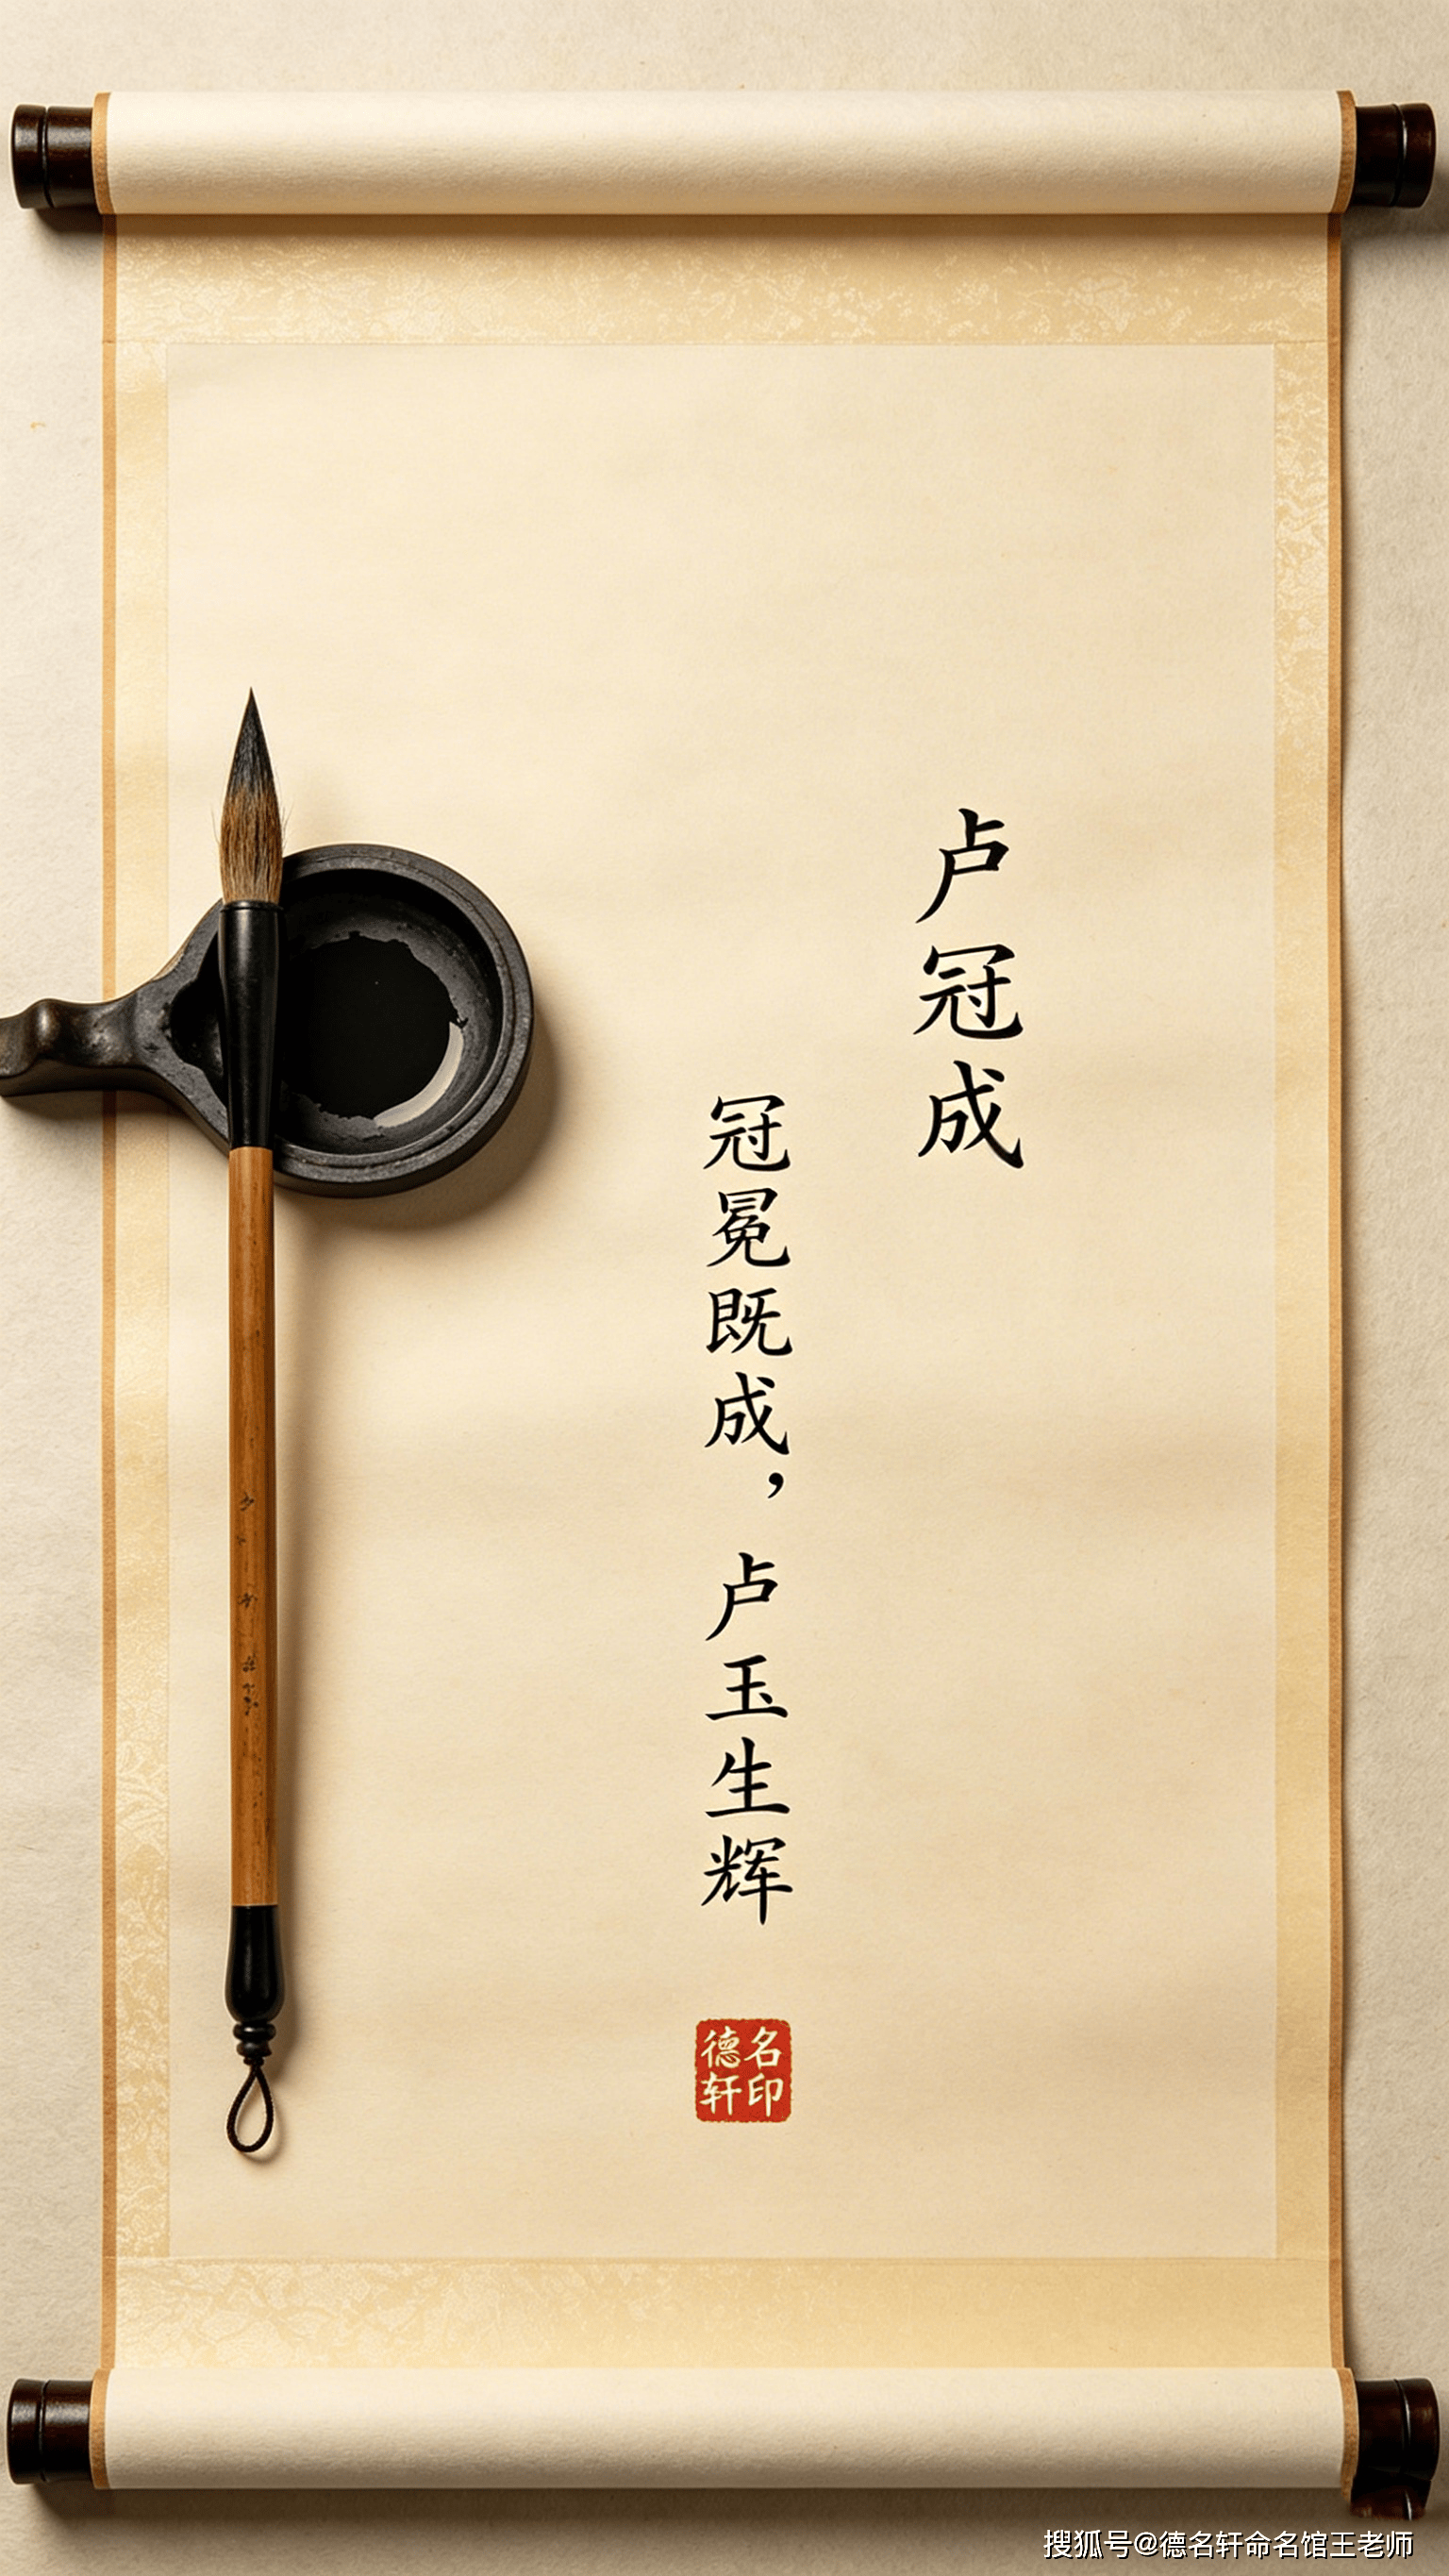 卢冠成
冠冕既成，卢玉生辉
德名
轩印
搜狐号@德名轩命名馆王老师